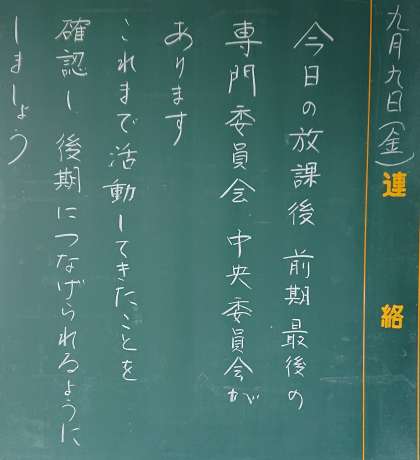 九月九日(金)
連絡
今日の放課後 前期最後の
専門委員会 中央委員会が
あります
これまで活動してきたことを
確認し 後期につなげられるように
しましょう